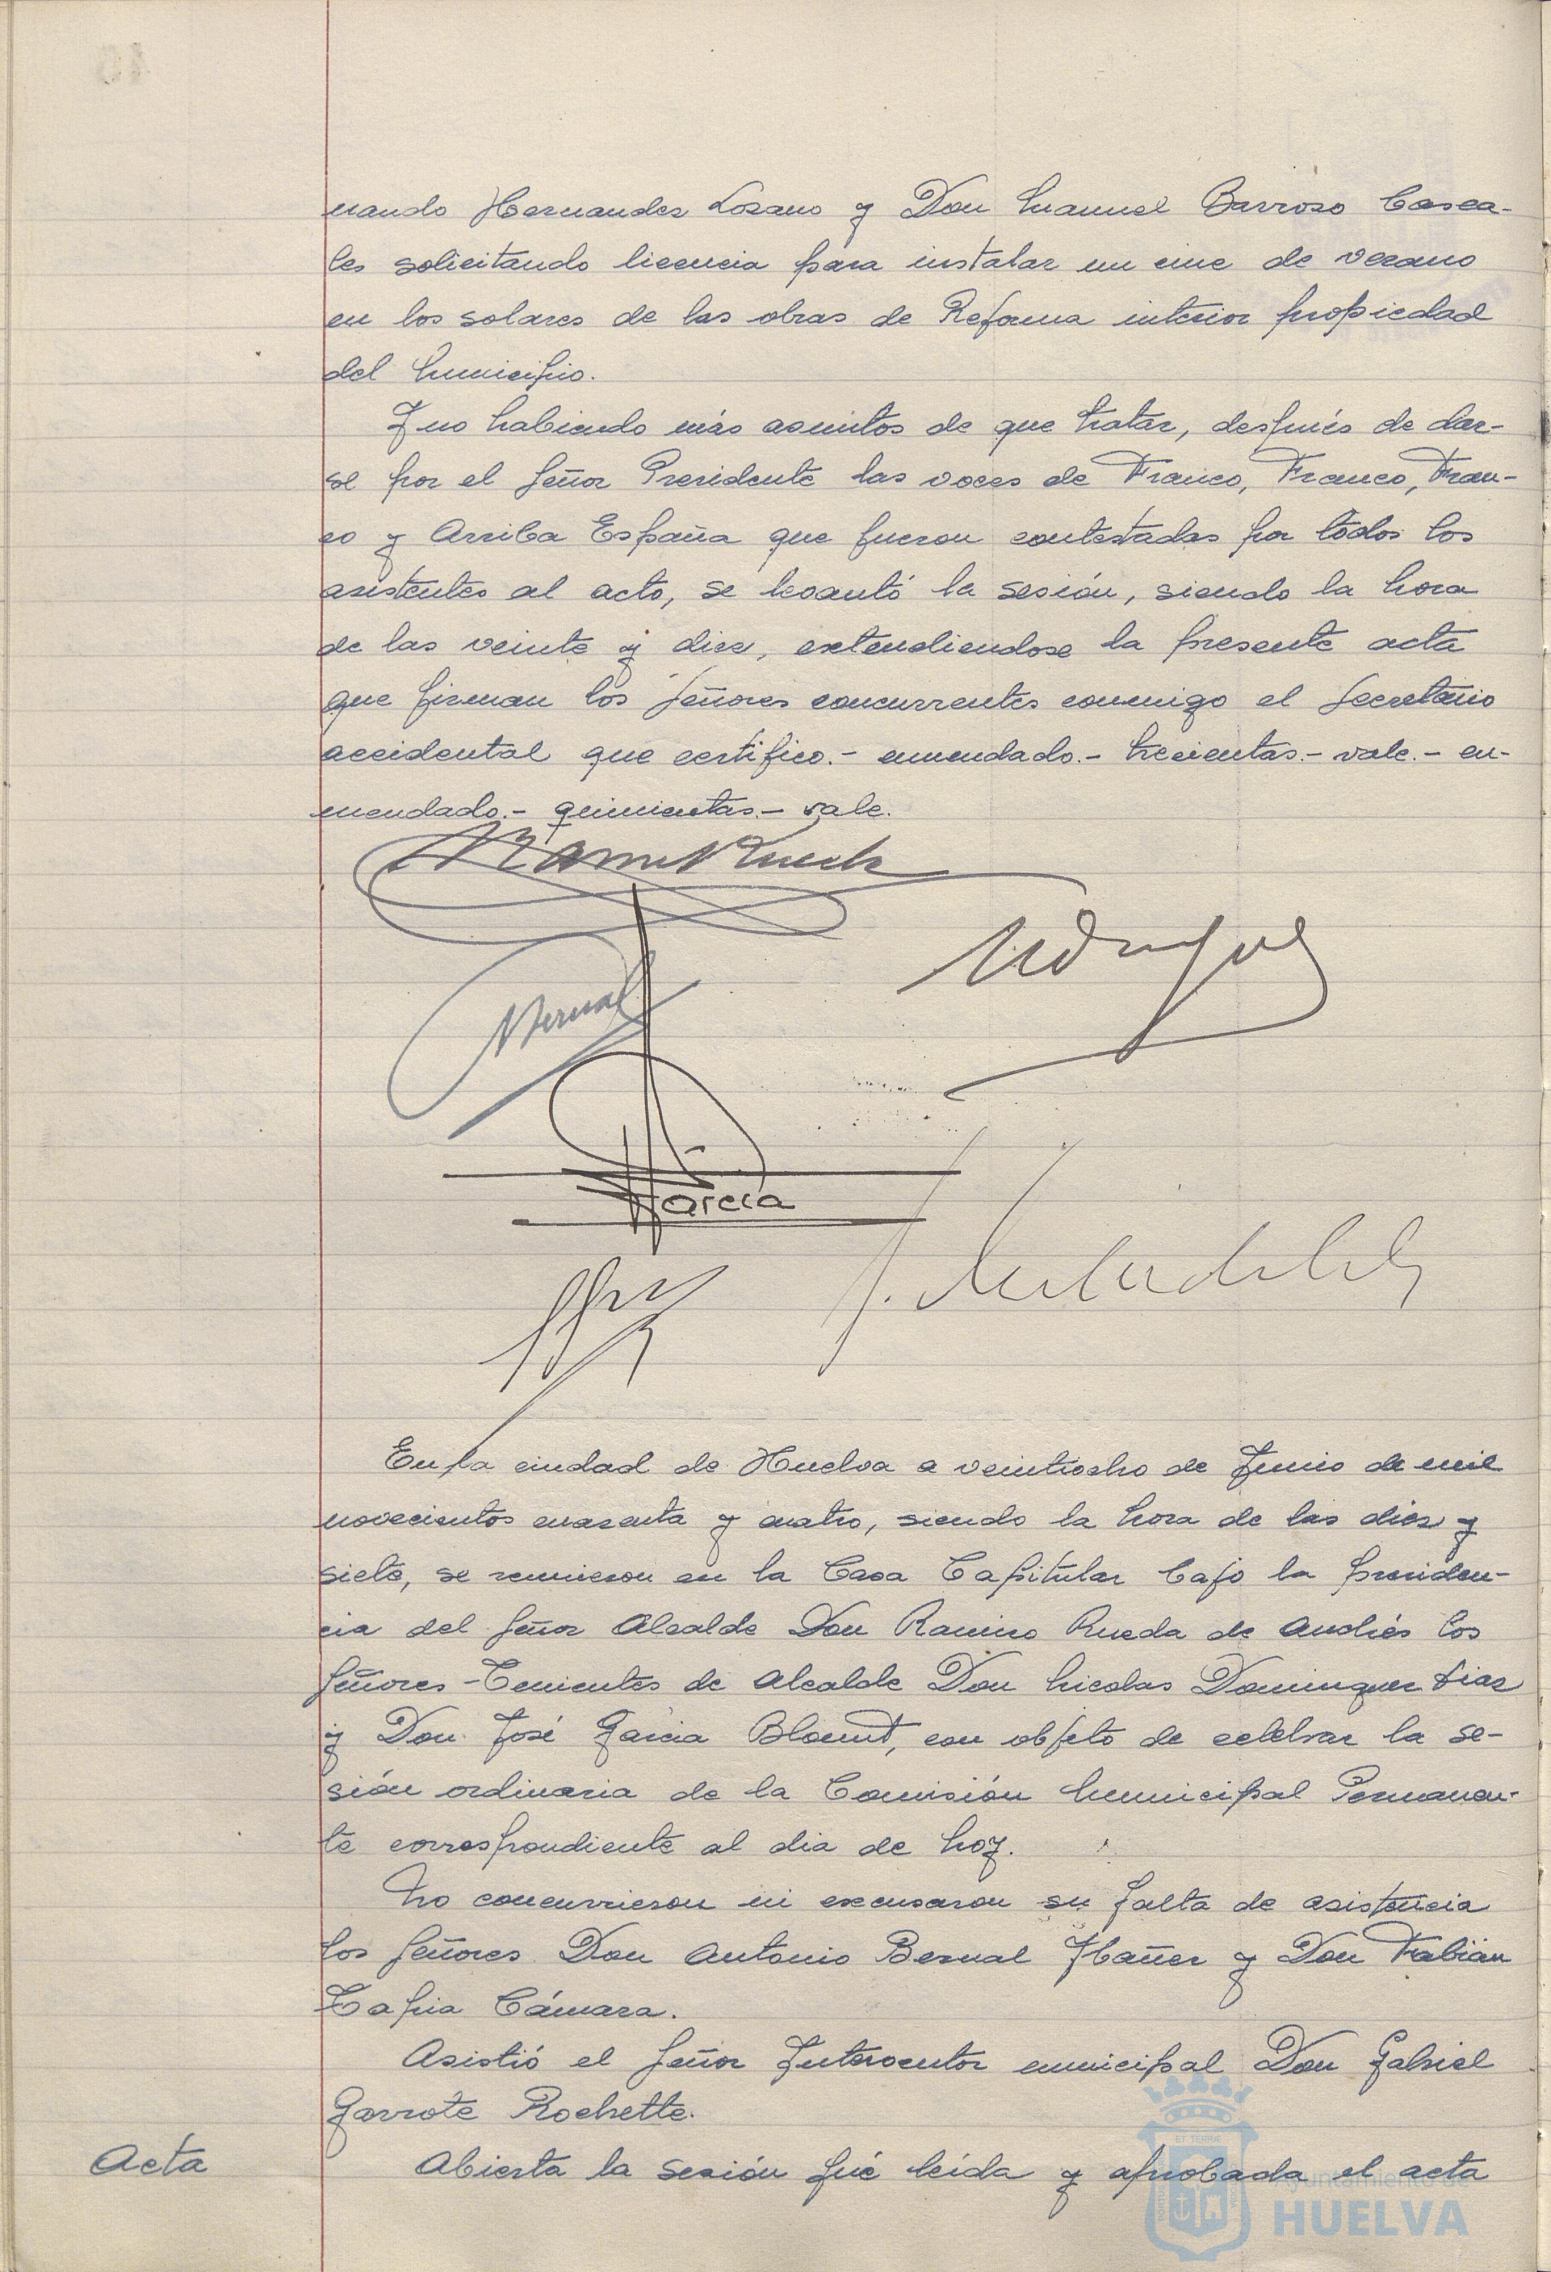 nando Hernandez Lozano y Don Manuel Barroso Casca-
les solicitando licencia para instalar un cine de verano
en los solares de las obras de Reforma interior propiedad
del Municipio.
Y no habiendo más asuntos de que tratar, después de dar-
se por el Señor Presidente las voces de Franco, Franco, Fran-
co y Arriba España que fueron contestadas por todos los
asistentes al acto, se levantó la sesión, siendo la hora
de las veinte y diez, extendiendose la presente acta
que firman los Señores concurrentes conmigo el Secretario
accidental que certifico.- enmendado.- trecientas.- vale.- en-
mendado.- quinientas.- vale.
Bernal
García
En la ciudad de Huelva a veintiocho de Junio de mil
novecientos cuarenta y cuatro, siendo la hora de las diez y
siete, se reunieron en la Casa Capitular bajo la presiden-
cia del Señor Alcalde Don Ramiro Rueda de Andrés los
Señores-Tenientes de Alcalde Don Nicolas Dominguez Diaz
y Don José Garcia Blount, con objeto de celebrar la se-
sión ordinaria de la Comisión Municipal Permanen-
te correspondiente al dia de hoy.
No concurrieron ni excusaron su falta de asistencia
los Señores Don Antonio Bernal Ybañez y Don Fabián
Tapia Cámara.
Asistió el Señor Interventor municipal Don Gabriel
Garrote Rochette.
Acta
Abierta la sesión fué leída y aprobada el acta
Ayuntamiento de
HUELVA